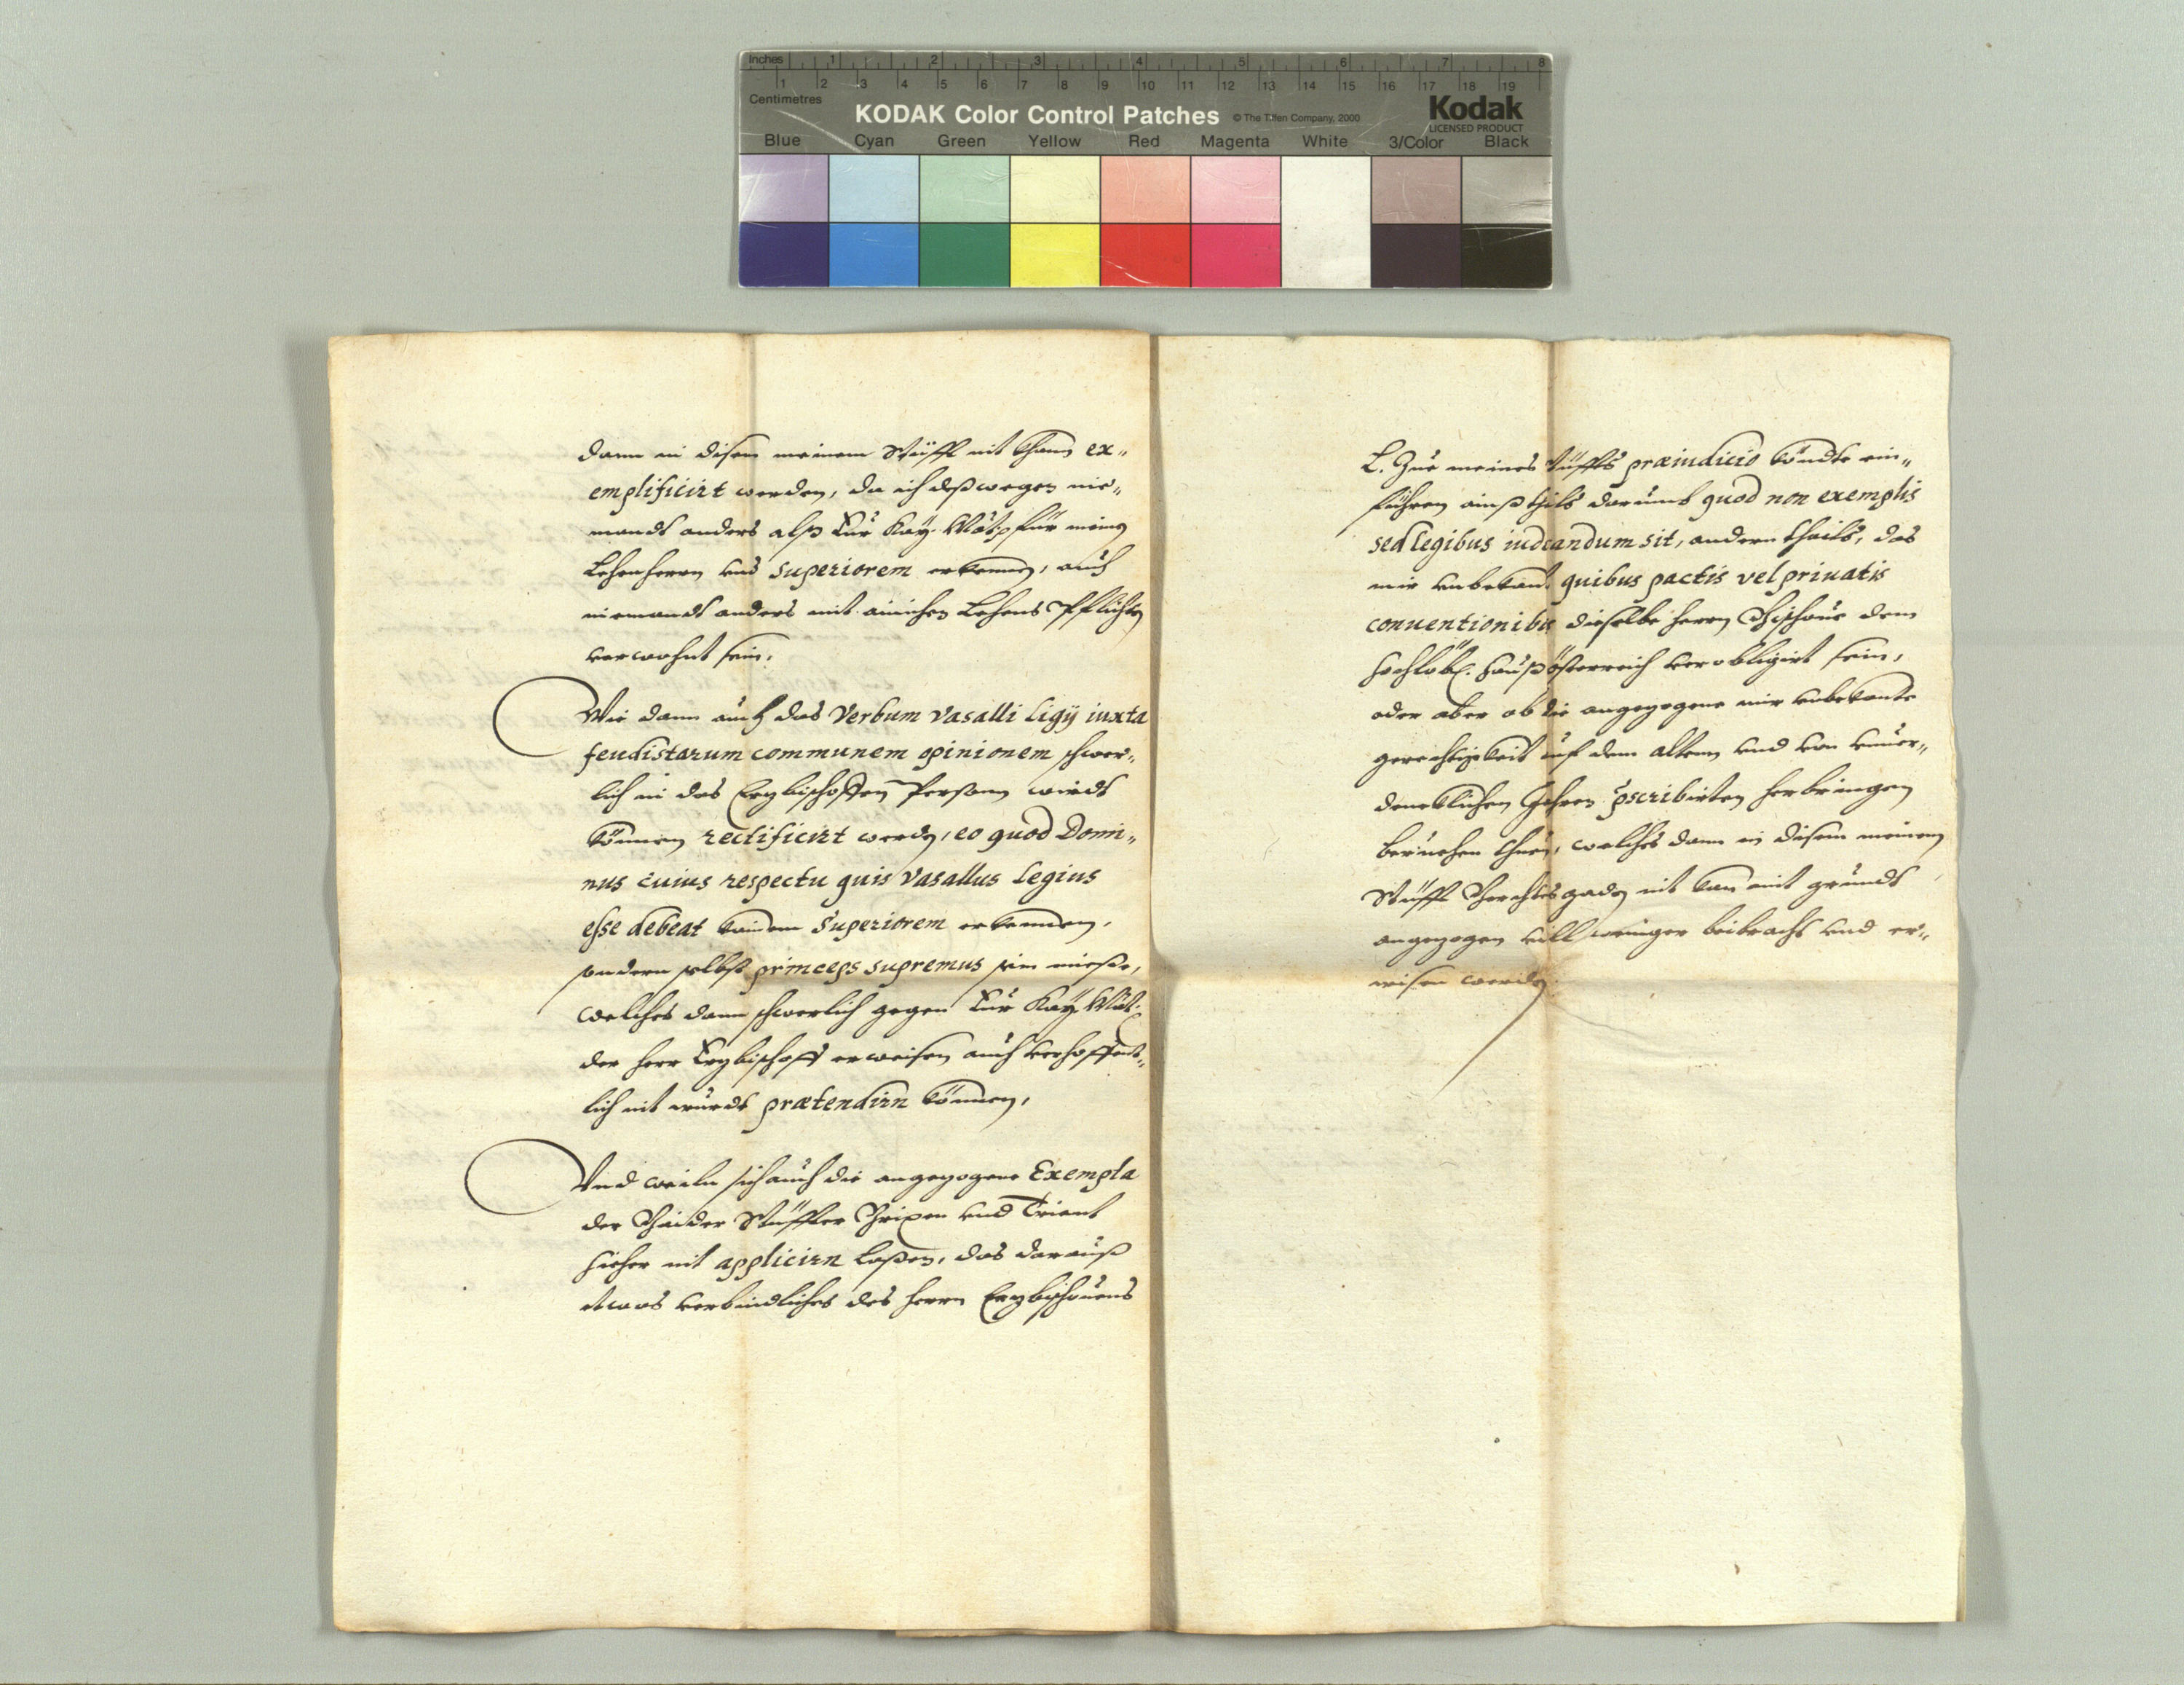 Inches 1 2 3 4 5 6 7 8
1 2 3 4 5 6 7 8 9 10 11 12 13 14 15 16 17 18 19
Centimetres
KODAK Color Control Patches © The Tiffen Company, 2000 Kodak
LICENSED PRODUCT
Blue Cyan Green Yellow Red Magenta White 3/Color Black
dann in disem meinem Stüfft nit khann ex„
emplificirt werden, da ich deßwegen nie„
mandt anders alß Eur Kay. Mät: für meinen
Lehenherrn und Superiorem erkennen, auch
niemandt anders mit ainichen Lehens Pflichten
verwohnt sein.
Wie dann auch das Verbum Vasalli Ligÿ iuxta
feudistarum communem opinionem schwer„
lich in des Erzbischoffen Person wirdt
können rectificirt werden, eo quod Domi„
nus cuius respectu quis Vasallus Legius
esse debeat kainem Superiorem erkennen,
sondern selbst princeps supremus sein miesse,
welches dann schwerlich gegen Eur Kay. Mät:
der herr Erzbischoff erweisen auch verhoffent„
lich nit wurdt prætendirn können,
Und weiln sich auch die angezogene Exempla
der Baider Stüffter Brixen und Trient
hieher nit applicirn laßen, das darauß
etwas verbindliches des herrn Erzbischouens
L. Zue meines Stüffts præiudicio köndte ein„
führen ainß thails darumb quod non exemplis
sed legibus iudicandum sit, andern thails, das
mir unbekant quibus pactis vel priuatis
conuentionibus dieselbe herrn Bischoue dem
hochlöbl. hauß österreich verobligirt sein,
oder aber ob die angezogene mir unbekante
gerechtigkeit auf dem altem und von unuer„
dencklichen Jahren pscribirten herbringen
beruehen thuen, welches dann in disem meinem
Stüfft Berchtesgaden nit kan mit grundt
angezogen vill weniger beibracht und er„
wisen werden.